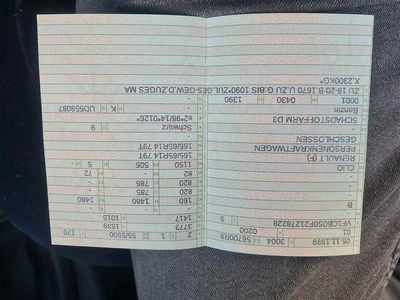 05.11.1999 3004
01 0200
VF1CB0SOF21278228 5
-
B
-
CLIO
RENAULT (F)
PERSONENKRAFTWAGEN
GESCHLOSSEN
SCHADSTOFFARM D3
Benzin
0001 0430 1390
ZU 18-20:B.1670 U.ZU G:BIS 1090*ZUL.GES-GEW.D.ZUGES MA
X.2300KG*
2 1 55/5500 170
3773 1639
1417 1015
160 1480 1480
820 785 -
820 785 -
82 - 72
1150 505 5
165/65R14 79T
165/65R14 79T
-
-
Schwarz 9
e2*98/14*0126*
- K UD559087